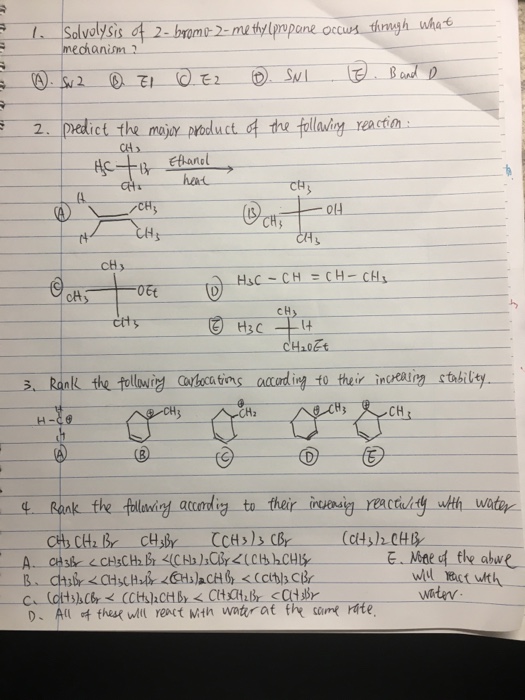 1. Solvolysis of 2-bromo-2-methylpropane occurs through what
mechanism?
Ⓐ. SN2 Ⓑ. E1 Ⓒ. E2 Ⓓ. SN1 Ⓔ. B and D
2. predict the major product of the following reaction:
CH3
H3C Br Ethanol
CH3 heat
Ⓐ H CH3
H CH3
Ⓑ CH3 CH3 OH
CH3
Ⓒ CH3 CH3 OEt
CH3
Ⓓ H3C - CH = CH - CH3
Ⓔ H3C CH3 H
CH2OEt
3. Rank the following carbocations according to their increasing stability.
H
H-C⊕ ⊕ CH3 ⊕CH2 ⊕ CH3 ⊕ CH3
H
Ⓐ Ⓑ Ⓒ Ⓓ Ⓔ
4. Rank the following according to their increasing reactivity with water
CH3CH2Br CH3Br (CH3)3CBr (CH3)2CHBr
A. CH3Br < CH3CH2Br < (CH3)3CBr < (CH3)2CHBr
B. CH3Br < CH3CH2Br < (CH3)2CHBr < (CH3)3CBr
C. (CH3)3CBr < (CH3)2CHBr < CH3CH2Br < CH3Br
D. All of these will react with water at the same rate.
E. None of the above
will react with
water.